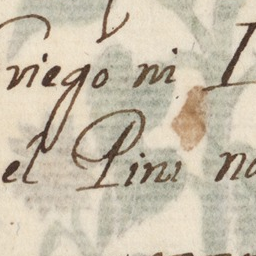 niego ni
el Pini no